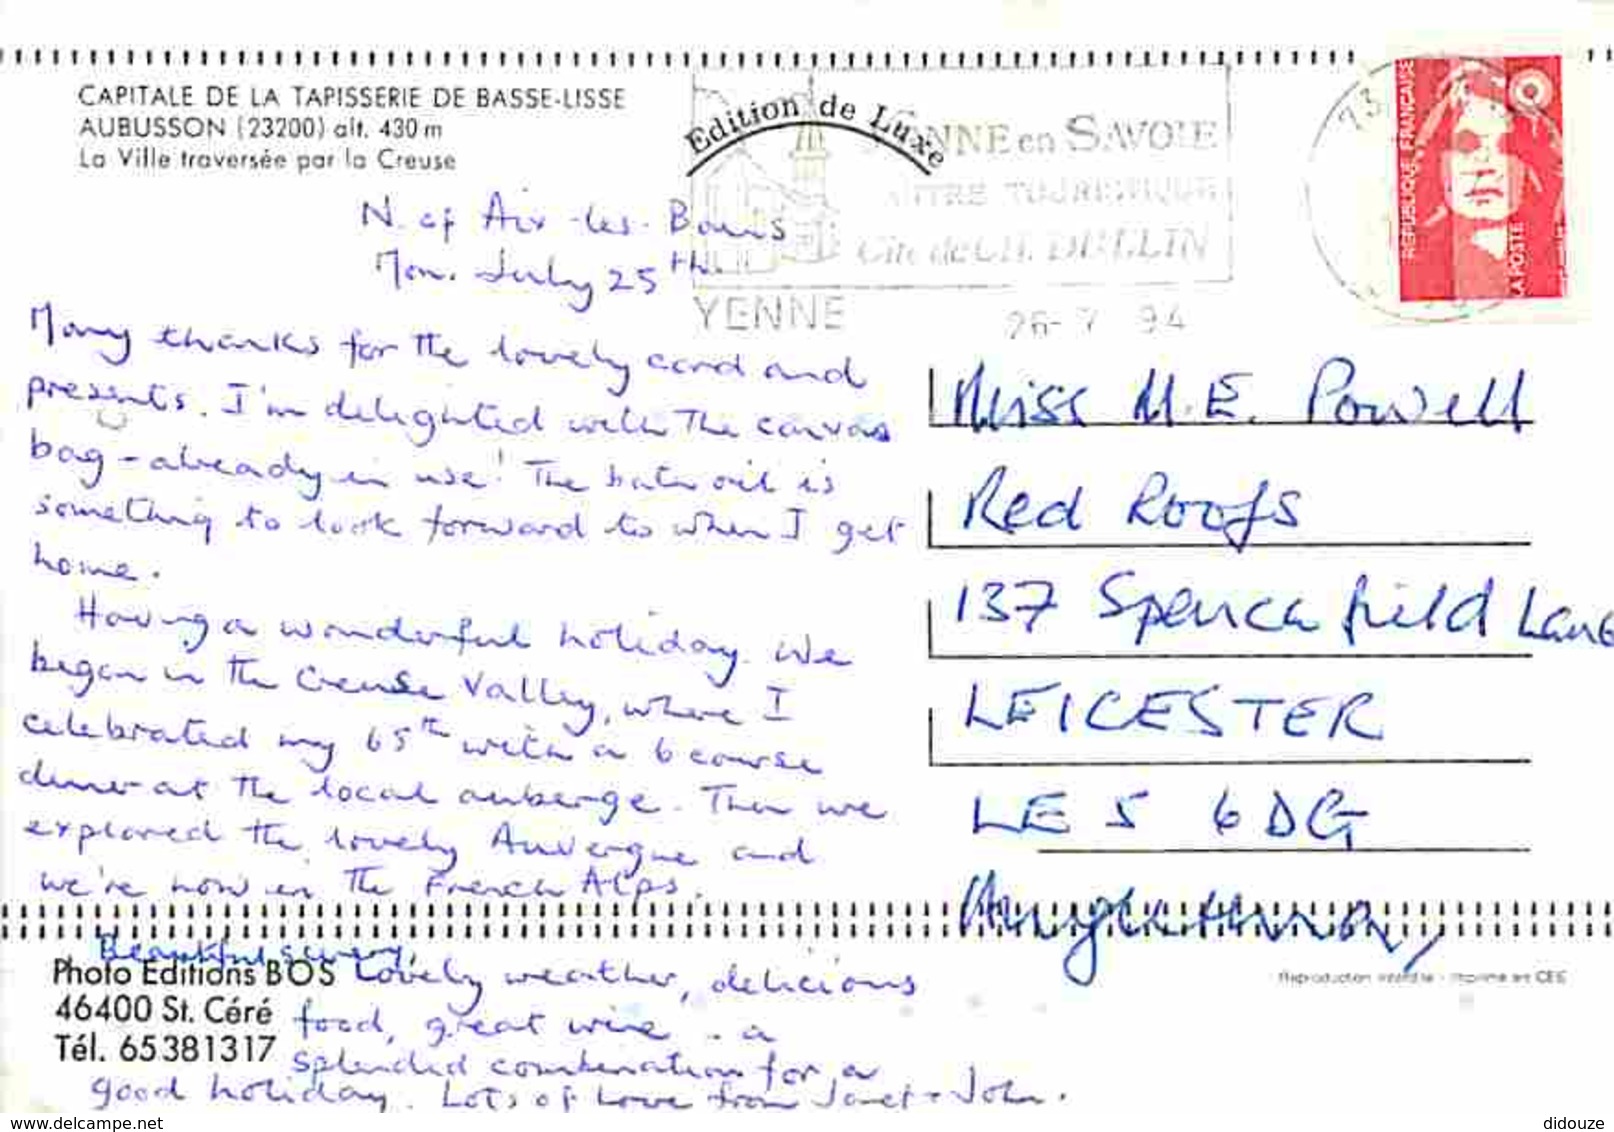 CAPITALE DE LA TAPISSERIE DE BASSE-LISSE
AUBUSSON (23200) alt. 430 m
La Ville traversée par la Creuse
Edition de Luxe
YENNE en SAVOIE
TOURISTIQUE
Cité de CH. DULLIN
YENNE 26-7 94
73
REPUBLIQUE FRANÇAISE
LA POSTE
N. of Aix-les-Bains
Mon. July 25th.
Many thanks for the lovely card and
presents. I'm delighted with the canvas
bag - already in use! The bath oil is
something to look forward to when I get
home.
Having a wonderful holiday. We
began in the Creuse Valley, where I
celebrated my 65th with a 6 course
dinner at the local auberge. Then we
explored the lovely Auvergne and
we're now in the French Alps.
Beautiful scenery,
Lovely weather, delicious
food, great wine - a
splendid combination for a
good holiday. Lots of Love from Janet + John.
Miss M.E. Powell
Red Roofs
137 Spencefield Lane
LEICESTER
LE5 6DG
Angleterre
Photo Editions BOS
46400 St. Céré
Tél. 65381317
Reproduction interdite - Imprimé en CEE
delcampe.net
didouze